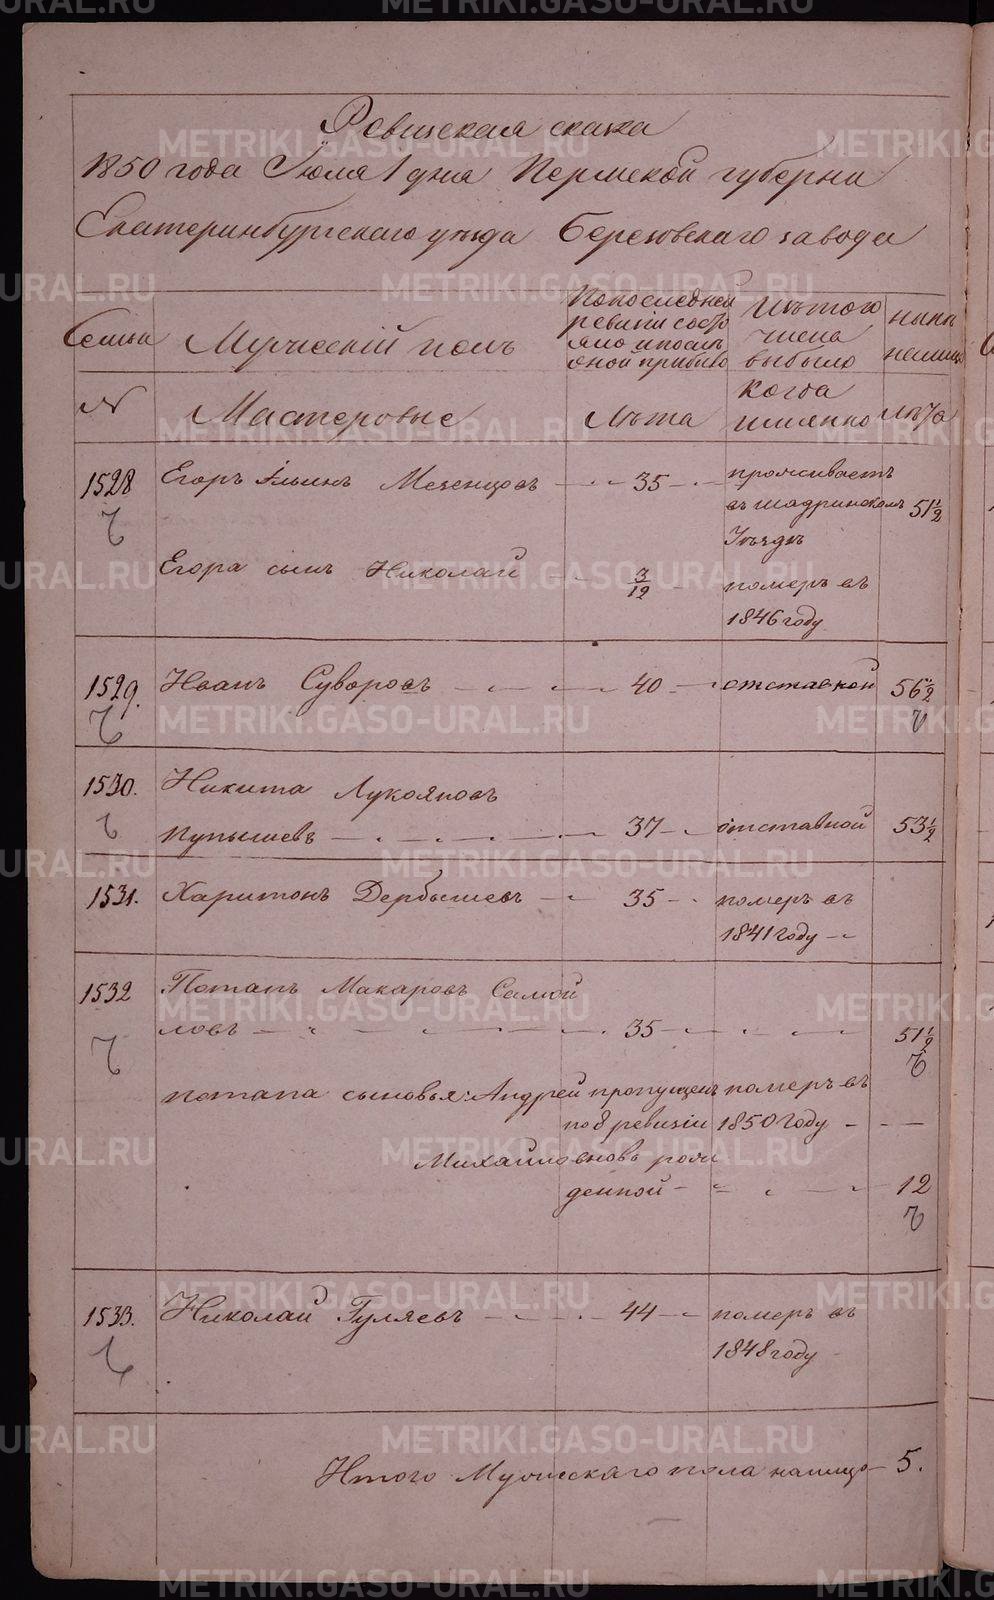 Ревизская сказка
1850 года Июля 1 дня Пермской губерни
Екатеринбургскаго уѣзда Березовскаго завода
Семьи
Мужескій полъ
По последней
ревизіи состо
яло и послѣ
оной прибыло
Изъ того
числа
выбыло
нынѣ
на лицо
№
Мастеровые
Лѣта
когда
имянно
лѣта
1528
Егоръ Ильинъ Мезенцовъ
35
проживаетъ
въ шадринскомъ
Уѣздѣ
51 1/2
Егора сынъ Николай
3/12
померъ въ
1846 году
1529.
Иванъ Суворовъ
40
отставной
56 1/2
1530.
Никита Лукояновъ
Пупышевъ
37
отставной
53 1/2
1531.
Харитонъ Дербышевъ
35
померъ въ
1841 году
1532
Потапъ Макаровъ Самой
ловъ
35
51 1/2
потапа сыновья: Андрей пропущенъ померъ въ
по 8 ревизіи 1850 году
Михайло вновь рож
денной
12
1533.
Николай Гуляевъ
44
померъ въ
1848 году
Итого Мужескаго пола налицо 5.
METRIKI.GASO-URAL.RU